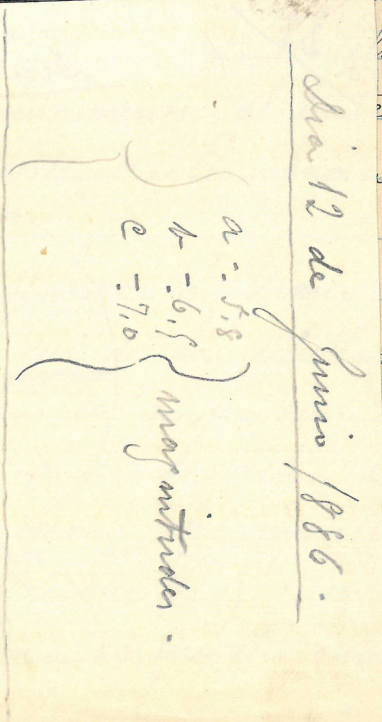 Dia 12 de Junio 1886.
a - 5,8
b - 6,5 magnitudes.
c - 7,0